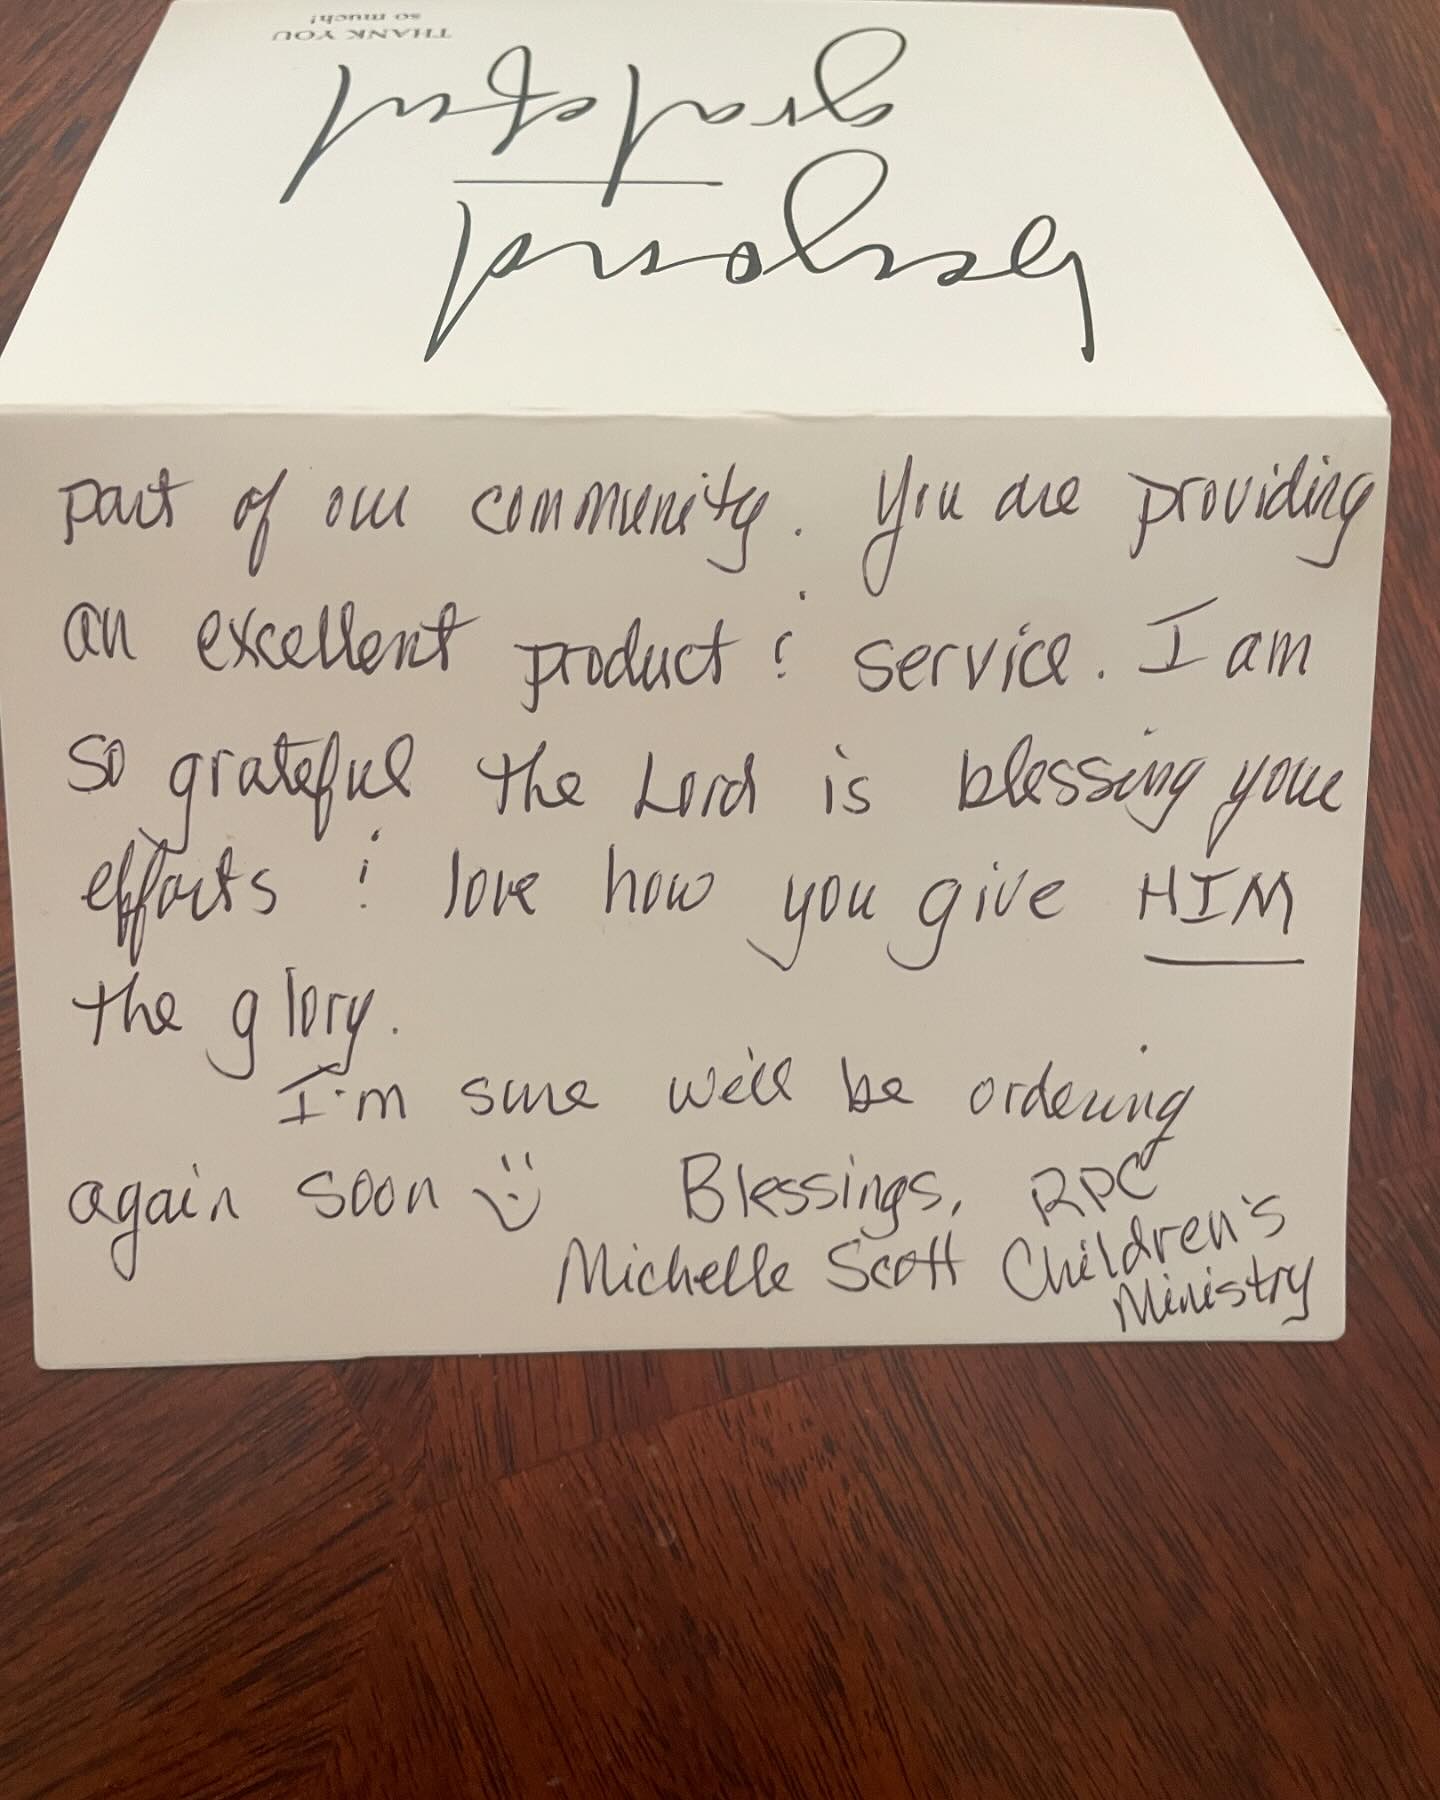 beyond
grateful
THANK YOU
so much!
part of our community. You are providing
an excellent product & service. I am
so grateful the Lord is blessing your
efforts & love how you give HIM
the glory.
I'm sure we'll be ordering
again soon Blessings, RPC
Michelle Scott Children's
Ministry